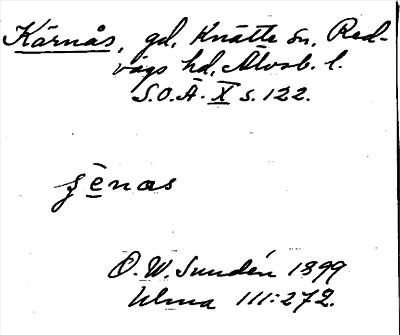 Kärnås, gd, Knätte sn, Red-
vägs hd, Älvsb. l.
S.O.Ä. X s. 122.
ʒènas
O. W. Sundén 1899
Ulma 111:272.